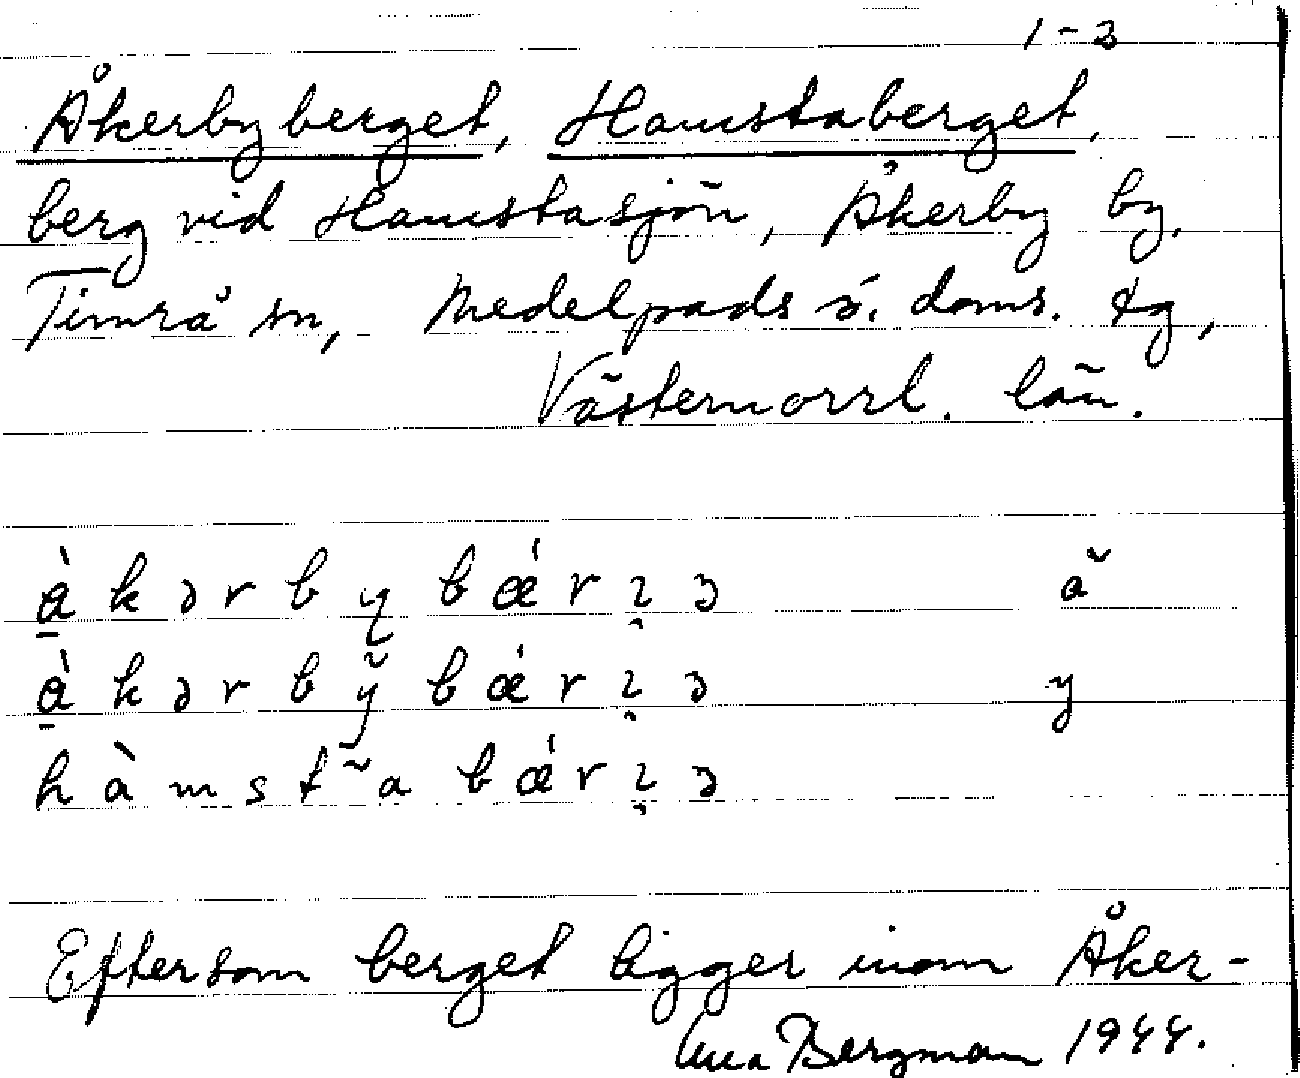 1-3
Åkerbyberget, Hamstaberget,
berg vid Hamstasjön, Åkerby by,
Timrå sn, Medelpads ö. doms. tg,
Västernorrl. län.
à̱ k ə r b y b ǽ r ʒ ə ǎ
à̱ k ə r b ỹ b ǽ r ʒ ə y
h à m s t ̃ a b ǽ r ʒ ə
Eftersom berget ligger inom Åker-
Bergman 1944.